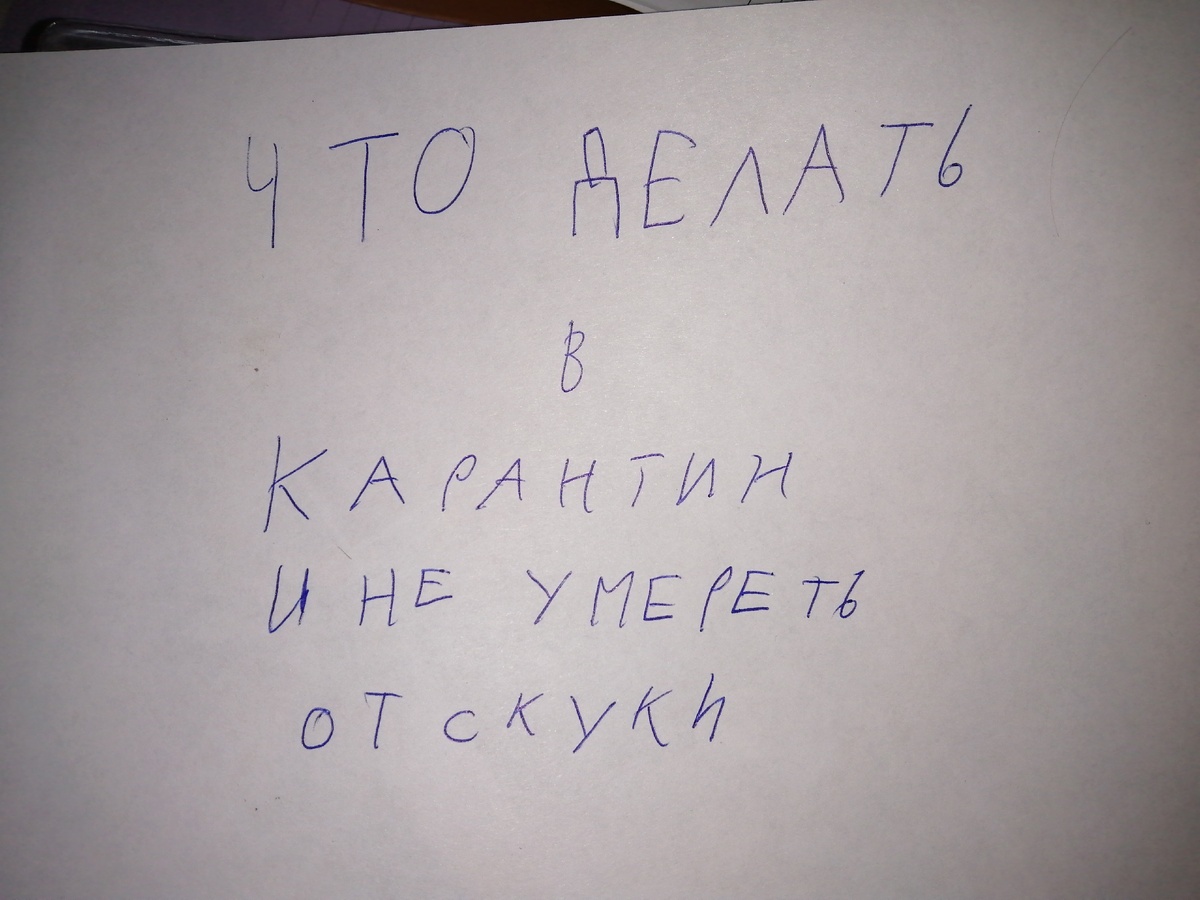 ЧТО ДЕЛАТЬ
В
КАРАНТИН
И НЕ УМЕРЕТЬ
ОТ СКУКИ